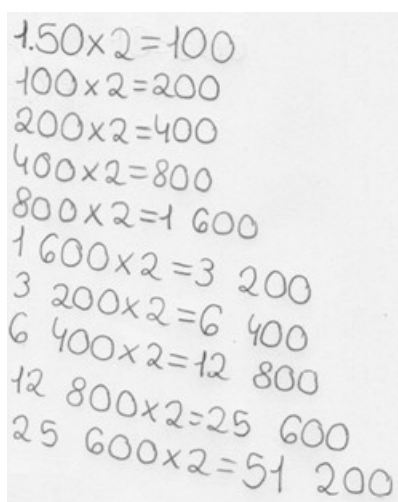 1.50×2=100
100×2=200
200×2=400
400×2=800
800×2=1 600
1 600×2=3 200
3 200×2=6 400
6 400×2=12 800
12 800×2=25 600
25 600×2=51 200